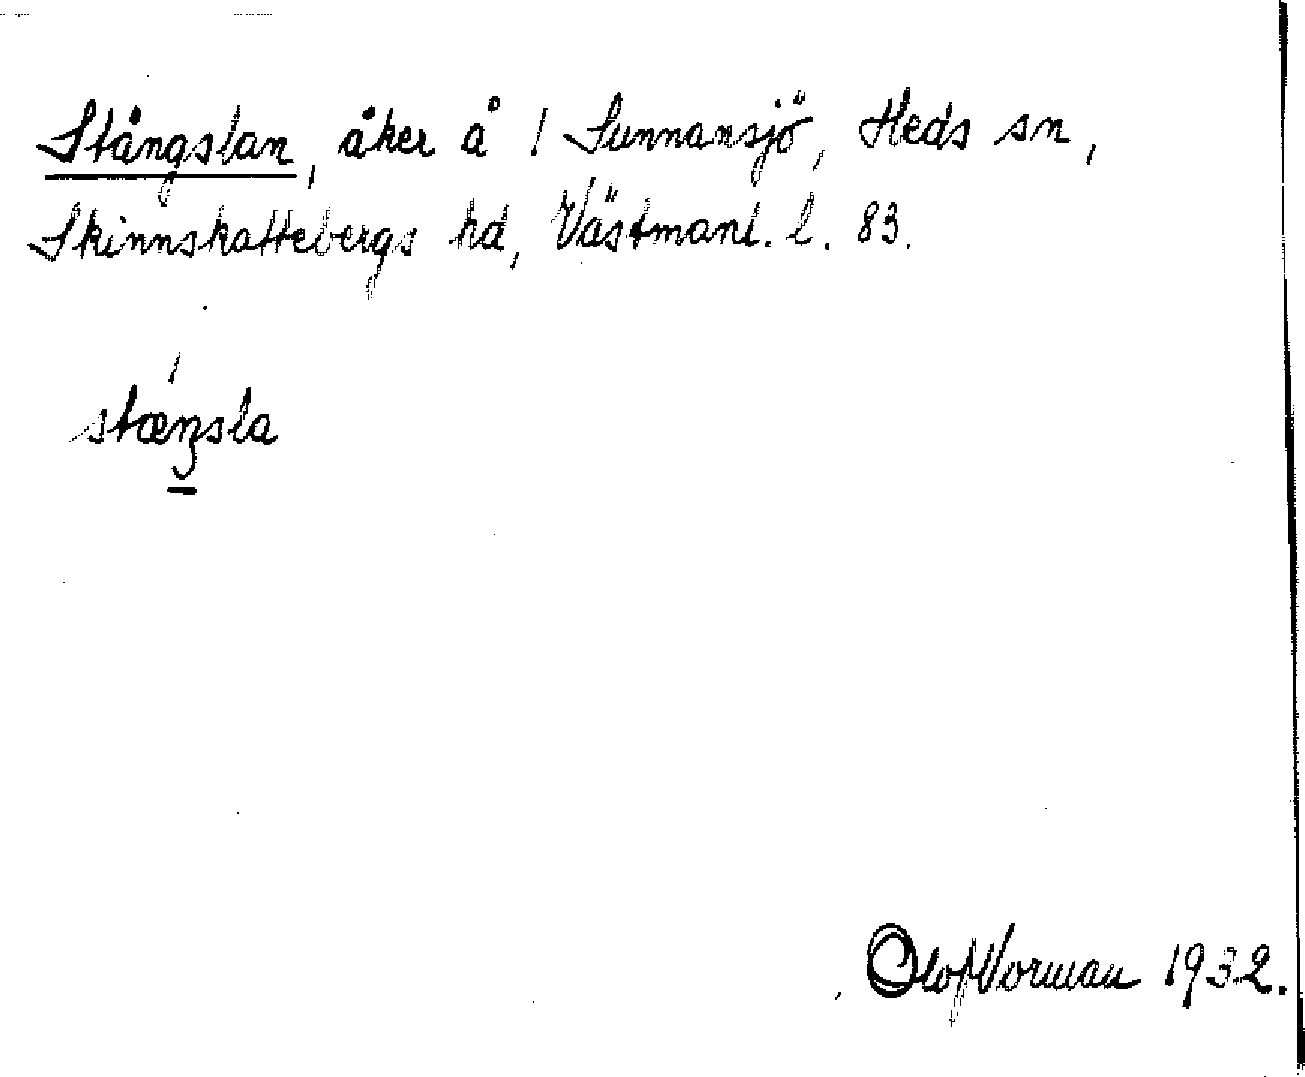 Stångslan, åker å ! Sunnansjö, Heds sn,
Skinnskattebergs hd, Västmanl. l. 83.
stæŋsla
Olof Norman 1932.